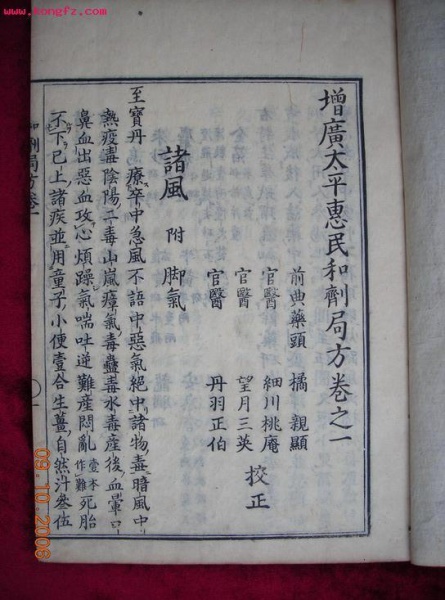 www.kongfz.com
增廣太平惠民和劑局方卷之一
前典藥頭 橘 親顯
官醫 細川桃庵
官醫 望月三英
官醫 丹羽正伯
校正
諸風 附 脚氣
至寶丹 療卒中急風不語中惡氣絕中諸物毒暗風中
熱疫毒陰陽二毒山嵐瘴氣毒蠱毒水毒産後血暈口
鼻血出惡血攻心煩躁氣喘吐逆難産悶亂壹本作難死胎
不下已上諸疾並用童子小便壹合生薑自然汁叁伍
和劑局方卷一
09.10.2006